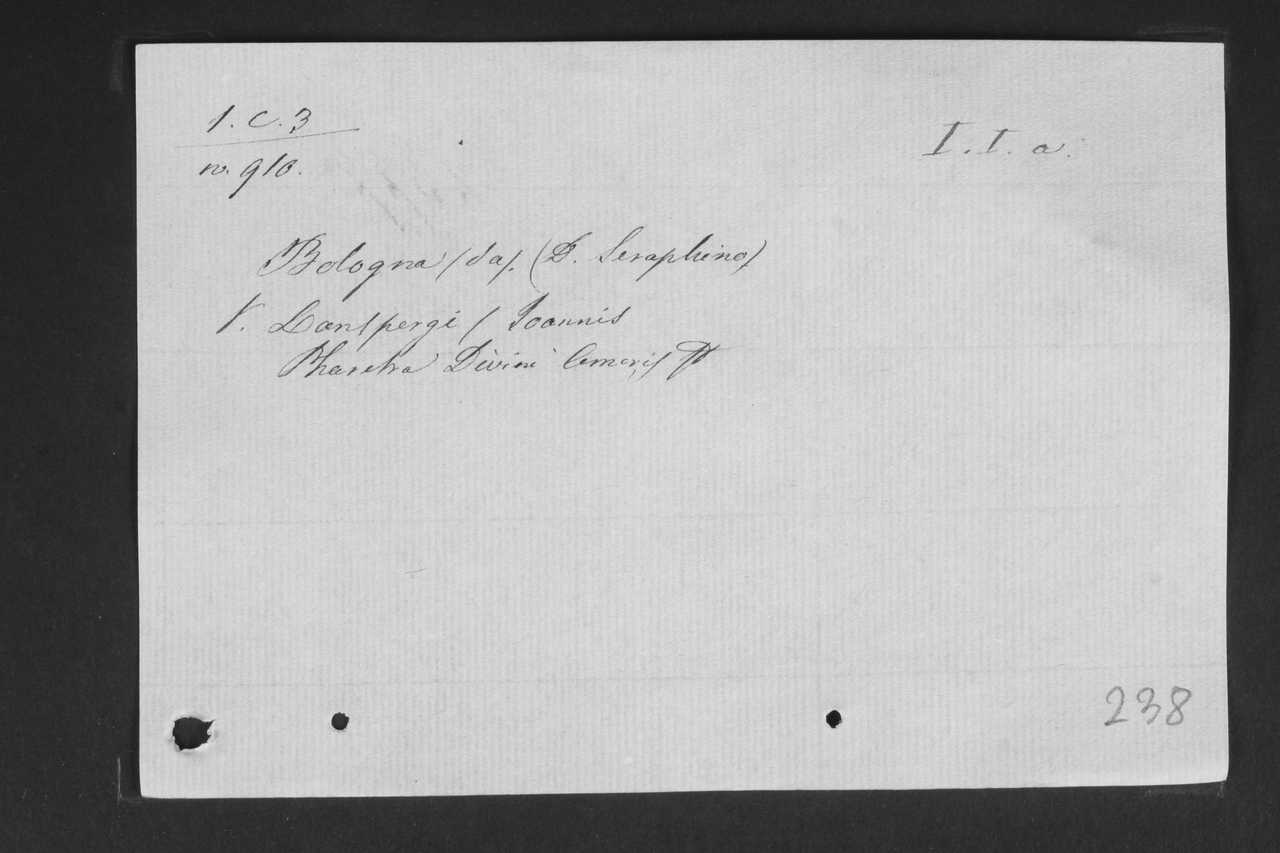 1. C. 3
I. I. a.
nr. 910.
Bologna /da/. (D. Seraphino)
V. Lanspergi / Joannis
Pharetra Divini Amoris
238